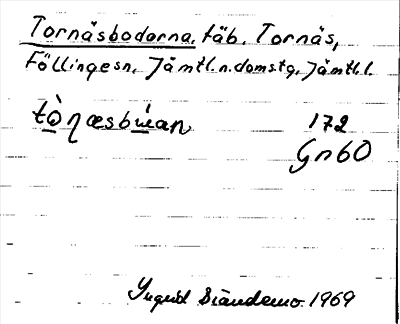 Tornäsbodarna, fäb. Tornäs,
Föllinge sn. Jämtl. n. domstg. Jämtl. l.
tòṇæsbẁan 172
Gn 60
1969